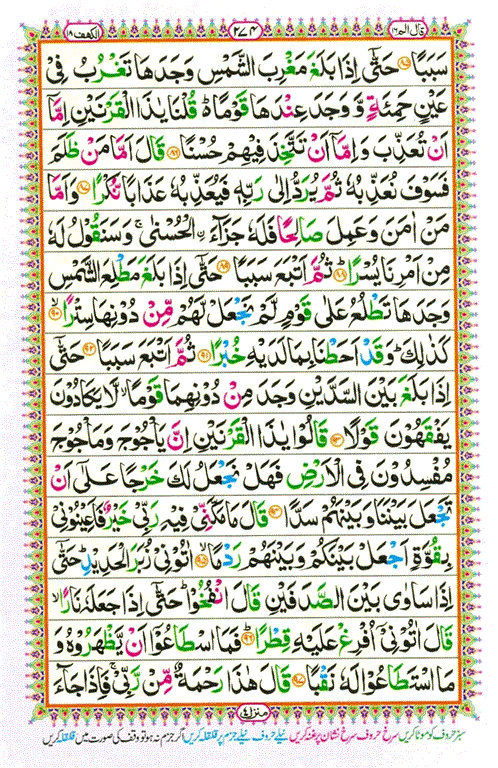 قال الم ١٦ ٢٧٤ الكهف ١٨
سَبَبًا ۝٨٥ حَتّٰۤى اِذَا بَلَغَ مَغْرِبَ الشَّمْسِ وَجَدَهَا تَغْرُبُ فِىْ
عَيْنٍ حَمِئَةٍ وَّ وَجَدَ عِنْدَهَا قَوْمًا ؕ قُلْنَا يٰذَا الْقَرْنَيْنِ اِمَّاۤ
اَنْ تُعَذِّبَ وَ اِمَّاۤ اَنْ تَتَّخِذَ فِيْهِمْ حُسْنًا ۝٨٦ قَالَ اَمَّا مَنْ ظَلَمَ
فَسَوْفَ نُعَذِّبُهٗ ثُمَّ يُرَدُّ اِلٰى رَبِّهٖ فَيُعَذِّبُهٗ عَذَابًا نُّكْرًا ۝٨٧ وَ اَمَّا
مَنْ اٰمَنَ وَ عَمِلَ صَالِحًا فَلَهٗ جَزَآءَ ۨالْحُسْنٰى ۚ وَ سَنَقُوْلُ لَهٗ
مِنْ اَمْرِنَا يُسْرًا ۝٨٨ ثُمَّ اَتْبَعَ سَبَبًا ۝٨٩ حَتّٰۤى اِذَا بَلَغَ مَطْلِعَ الشَّمْسِ
وَجَدَهَا تَطْلُعُ عَلٰى قَوْمٍ لَّمْ نَجْعَلْ لَّهُمْ مِّنْ دُوْنِهَا سِتْرًا ۝٩٠
كَذٰلِكَ ؕ وَ قَدْ اَحَطْنَا بِمَا لَدَيْهِ خُبْرًا ۝٩١ ثُمَّ اَتْبَعَ سَبَبًا ۝٩٢ حَتّٰۤى
اِذَا بَلَغَ بَيْنَ السَّدَّيْنِ وَجَدَ مِنْ دُوْنِهِمَا قَوْمًا ۙ لَّا يَكَادُوْنَ
يَفْقَهُوْنَ قَوْلًا ۝٩٣ قَالُوْا يٰذَا الْقَرْنَيْنِ اِنَّ يَاْجُوْجَ وَ مَاْجُوْجَ
مُفْسِدُوْنَ فِى الْاَرْضِ فَهَلْ نَجْعَلُ لَكَ خَرْجًا عَلٰۤى اَنْ
تَجْعَلَ بَيْنَنَا وَ بَيْنَهُمْ سَدًّا ۝٩٤ قَالَ مَا مَكَّنِّىْ فِيْهِ رَبِّىْ خَيْرٌ فَاَعِيْنُوْنِىْ
بِقُوَّةٍ اَجْعَلْ بَيْنَكُمْ وَ بَيْنَهُمْ رَدْمًا ۝٩٥ اٰتُوْنِىْ زُبَرَ الْحَدِيْدِ ؕ حَتّٰۤى
اِذَا سَاوٰى بَيْنَ الصَّدَفَيْنِ قَالَ انْفُخُوْا ؕ حَتّٰۤى اِذَا جَعَلَهٗ نَارًا ۙ
قَالَ اٰتُوْنِىْۤ اُفْرِغْ عَلَيْهِ قِطْرًا ۝٩٦ فَمَا اسْطَاعُوْۤا اَنْ يَّظْهَرُوْهُ وَ
مَا اسْتَطَاعُوْا لَهٗ نَقْبًا ۝٩٧ قَالَ هٰذَا رَحْمَةٌ مِّنْ رَّبِّىْ ۚ فَاِذَا جَآءَ
منزل ٤
سبز حروف کو موٹا کریں سرخ حروف سرخ نشان پر غنہ کریں نیلے حروف نیلے جزم پر قلقلہ کریں اگر جزم نہ ہو تو وقف کی صورت میں قلقلہ کریں